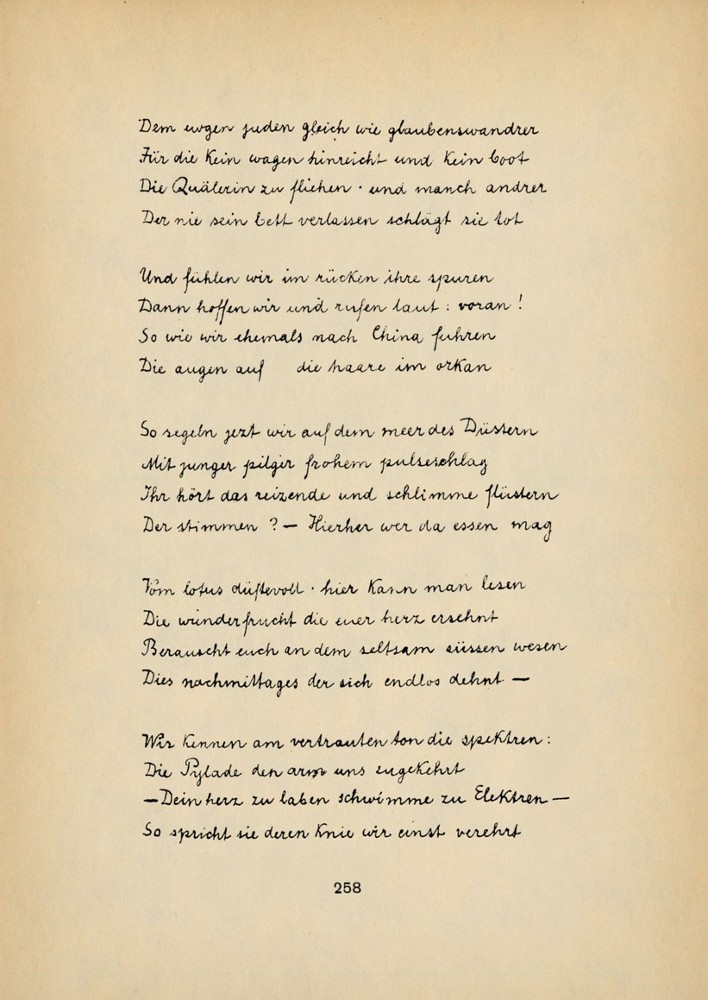 Dem ewgen juden gleich wie glaubenswandrer
Für die kein wagen hinreicht und kein boot
Die Quälerin zu fliehen · und manch andrer
Der nie sein bett verlassen schlägt sie tot
Und fühlen wir im rücken ihre spuren
Dann hoffen wir und rufen laut : voran !
So wie wir ehemals nach China fuhren
Die augen auf die haare im orkan
So segeln jezt wir auf dem meer des Düstern
Mit junger pilger frohem pulseschlag
Ihr hört das reizende und schlimme flüstern
Der stimmen ? — Hierher wer da essen mag
Vom lotus düftevoll · hier kann man lesen
Die wunderfrucht die euer herz ersehnt
Berauscht euch an dem seltsam süssen wesen
Dies nachmittages der sich endlos dehnt —
Wir kennen am vertrauten ton die spektren :
Die Pylade den arm uns zugekehrt
— Dein herz zu laben schwimme zu Elektren —
So spricht sie deren knie wir einst verehrt
258